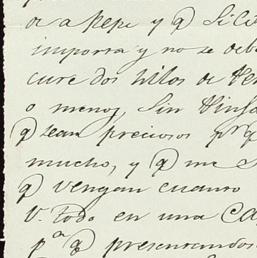 or a Pepe y q Si
importa y no se
cure dos hilos de
o menos, sin
q sean preciosos prq
mucho, y q me
q vengan cuanto
V. todo en una Ca
pa q presentando